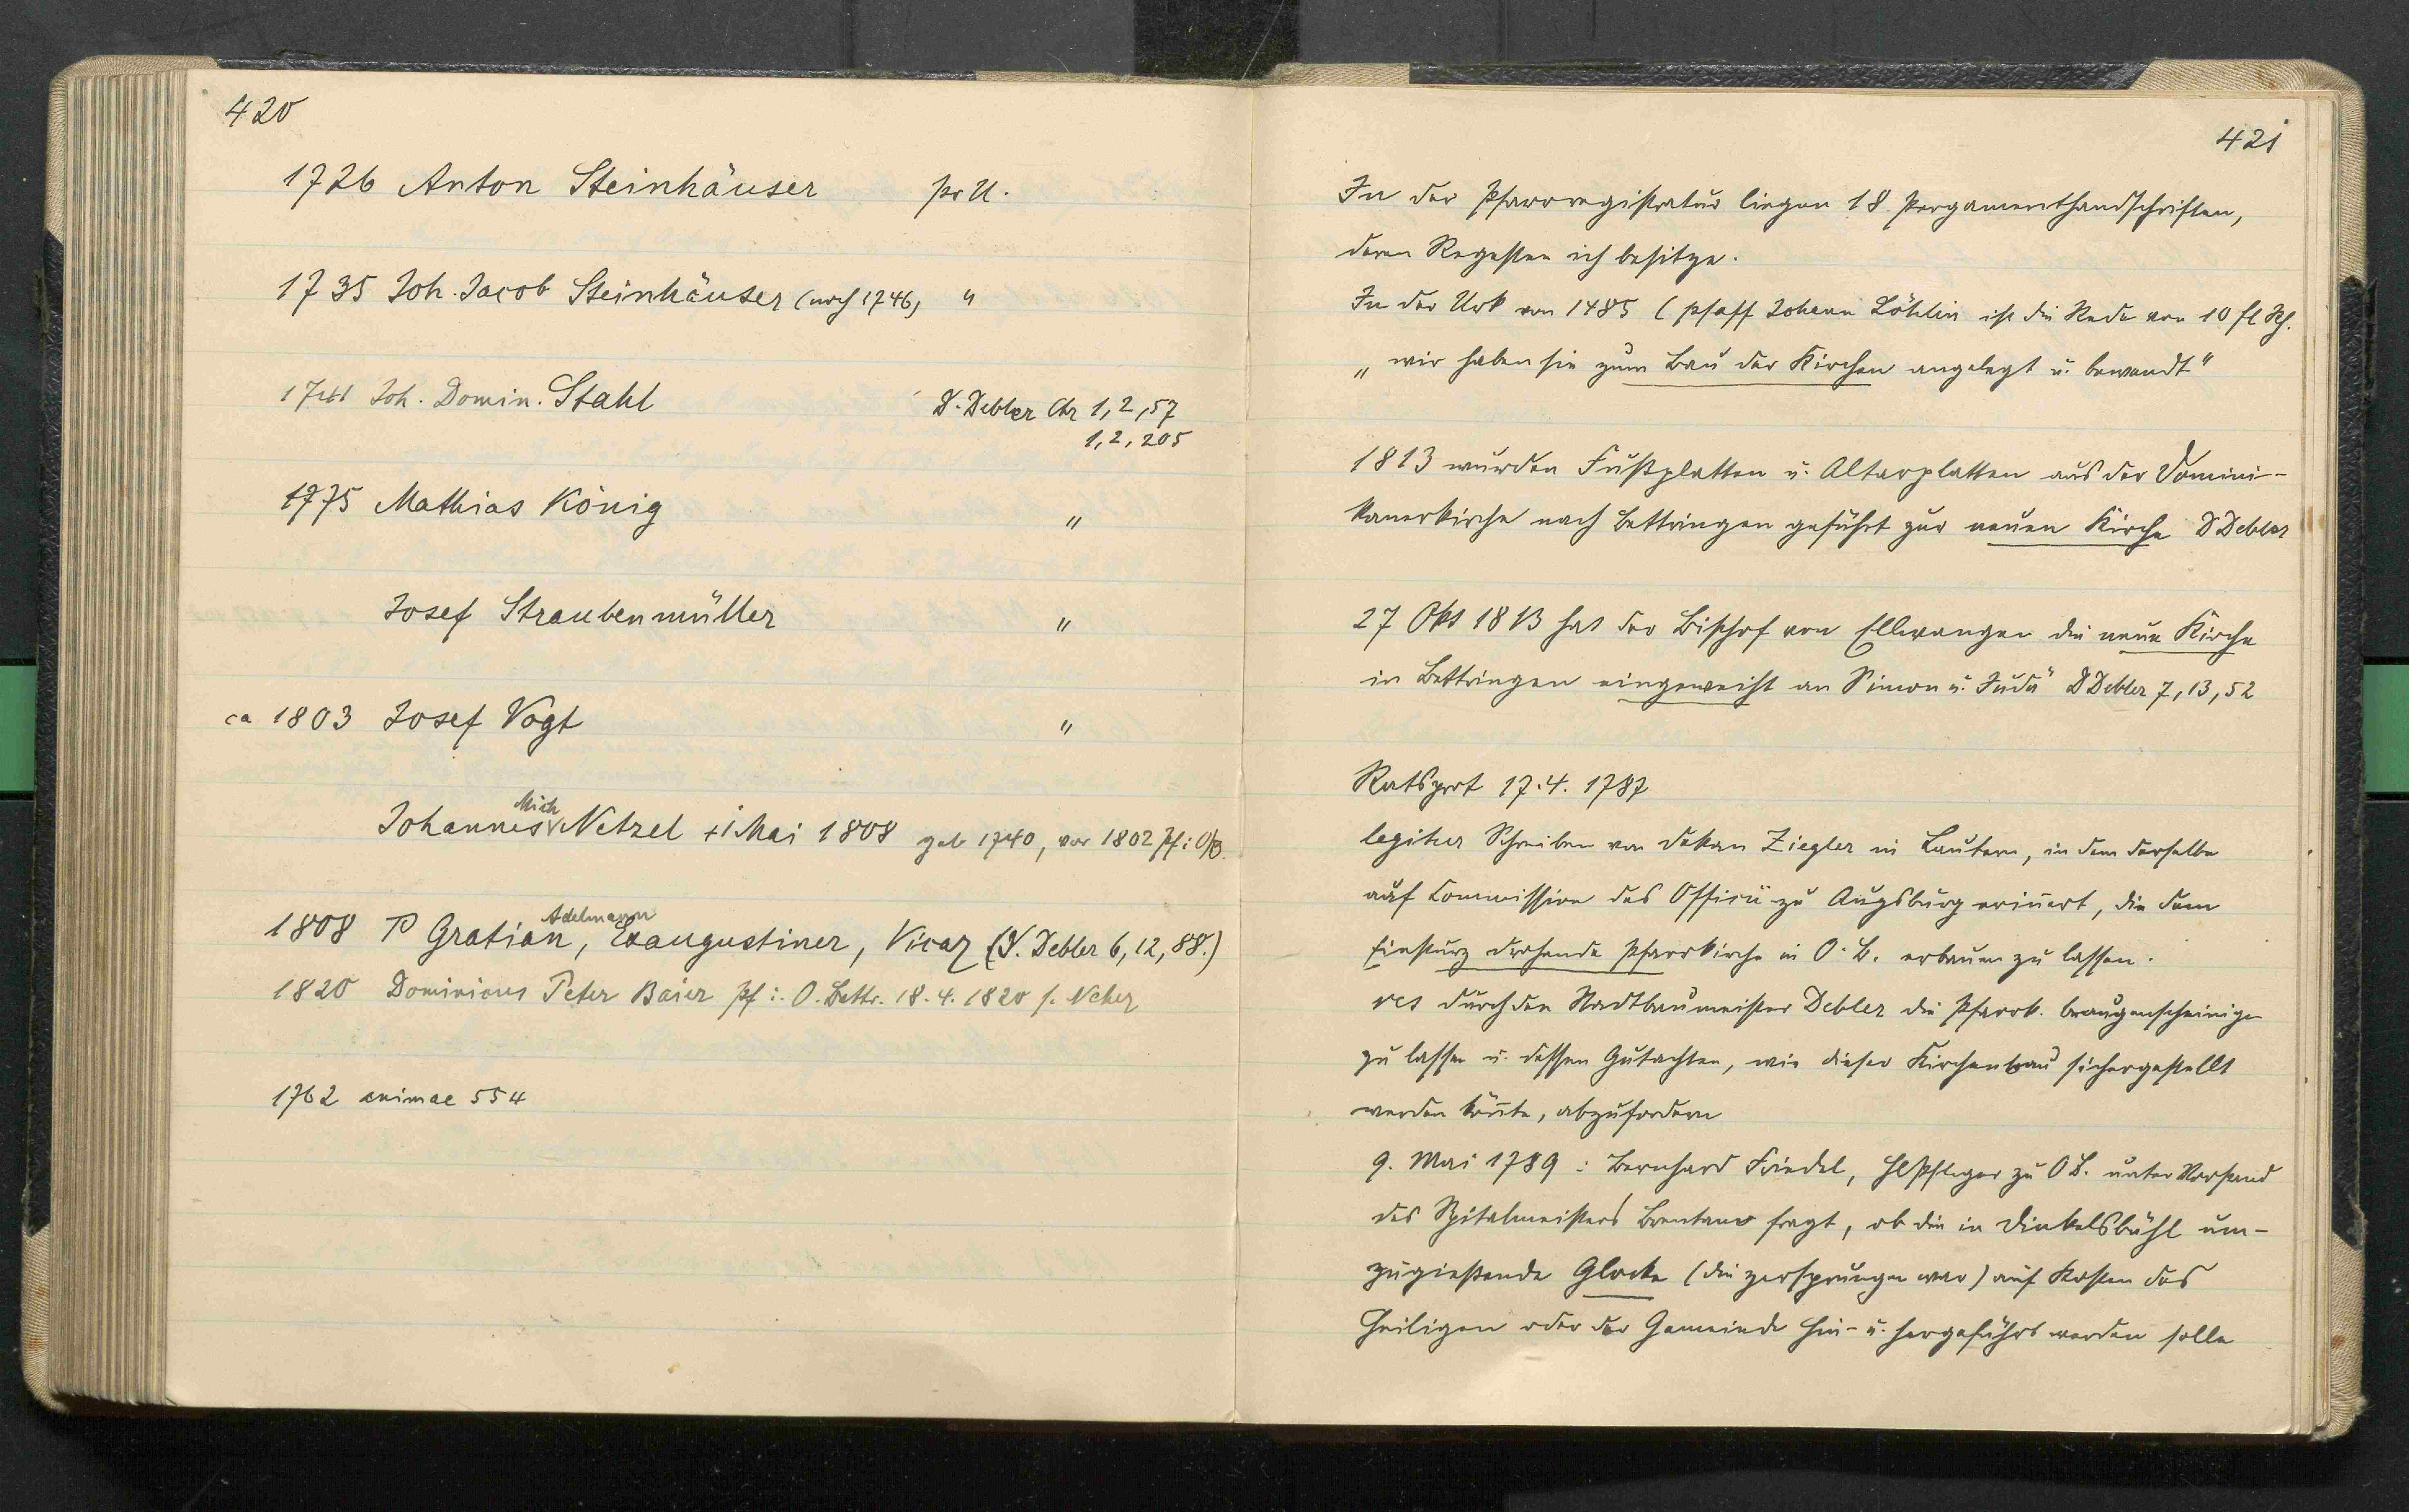 420
1726 Anton Steinhäuser pr U.
1735 Joh. Jacob Steinhäuser (noch 1746) "
1741 Joh. Domin. Stahl D. Debler Chr 1,2,57
1,2,205
1775 Mathias König "
Josef Straubenmüller "
ca 1803 Josef Vogt "
Johannes Mich Netzel + 1 Mai 1808 geb 1740, vor 1802 Pf i O/B.
1808 P Gratian Adelmann, Exaugustiner, Vicar (D. Debler 6,12,88.)
1820 Dominicus Peter Baier Pf i. O. Bettr. 18. 4. 1820 s. Neher
1762 animae 554
421
In der Pfarrregistratur liegen 18 Pergamenthandschriften,
deren Regesten ich besitze.
In der Urk von 1485 (Pfaff Johann Löhlin ist die Rede von 10 fl Rh.
„wir haben sie zum Bau der Kirchen angelegt u. bewendt"
1813 wurden Fußplatten u. Altarplatten aus der Domini-
kanerkirche nach Bettringen geführt zur neuen Kirche D Debler
27 Okt 1813 hat der Bischof von Ellwangen die neue Kirche
in Bettringen eingeweiht an Simon u. Judä D Debler 7,13,52
Ratsprot 17. 4. 1787
legitur Schreiben von Dekan Ziegler in Lautern, in dem derselbe
auf Commission des Officii zu Augsburg erinnert, die dem
Einsturz drohende Pfarrkirche in O. B. erbauen zu lassen.
res durch den Stadtbaumeister Debler die Pfarrk. beaugenscheinigen
zu lassen u. dessen Gutachten, wie dieser Kirchenbau sichergestellt
werden könnte, abzufordern
9. Mai 1789 : Bernhard Friedel, Hlpfleger zu OB. unter Vorstand
des Spitalmeisters Brentano fragt, ob die in Dinkelsbühl um-
zugießende Glocke (die zersprungen war) auf Kosten des
Heiligen oder der Gemeinde hin- u. hergeführt werden solle